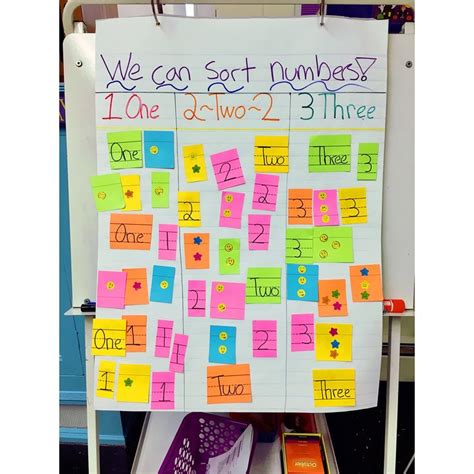 We can sort numbers!
1 One 2~Two~2 3 Three
One Two Three 3
2
2 2 2 3 3
One 1 2
1 2 Two
One 1 1 1 2 3
1 1 Two Three
October